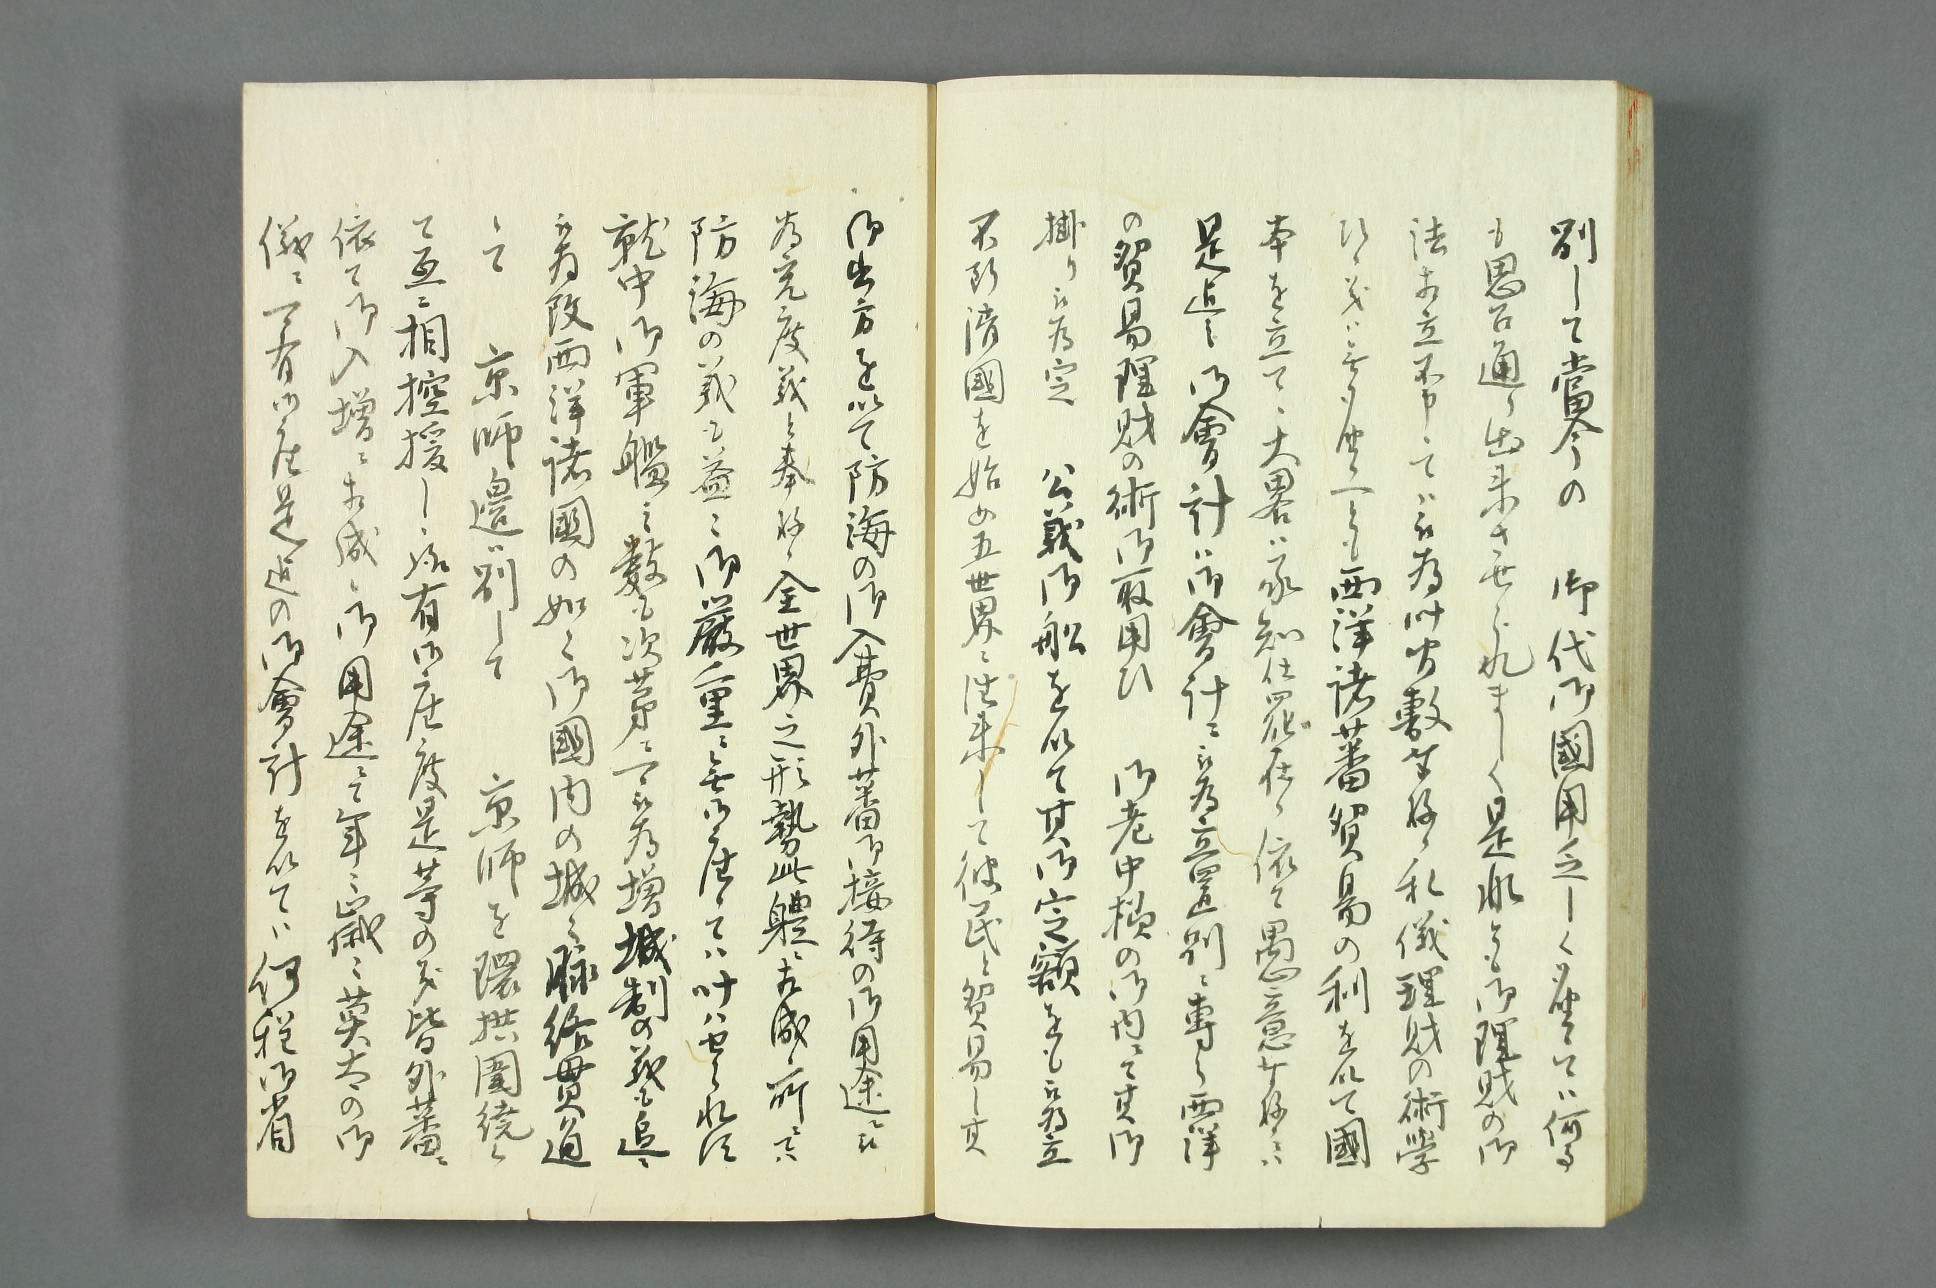 別して當今の 御代御國用乏しく座候ては何事
も思召通り出来させられましく是非とも御理財の御
法相立不申ては被為叶間敷奉存候私儀理財の術学
ひ候義は無御座候へとも西洋諸蕃貿易の利を以て國
本を立て候大畧は承知仕罷在候依て愚意奉存候には
是迄之御會計は御會計に被為立置別に専ら西洋
の貿易理財の術御取用ひ 御老中様の御内にて其御
掛り被為定 公義御船を以て其御定額をも被為立
不断清國を始め五世界に往来して彼民と貿易し其
御出方を以て防海の御入費外蕃御接待の御用途に被
為充度義と奉存候全世界之形勢此體に相成候所にては
防海の義も益に御厳重に無御座候ては叶はせられす
就中御軍艦之數も次第に被為増城制の義も追に
被為改西洋諸國の如く御國内の城々脉絡貫通
して 京師邊は別して 京師を環拱圍繞し
て互に相控援し候様有御座度是等の義皆外蕃に
依て御入増に相成候御用途にて年々歳々莫大の御
儀に可有御座是迄の御會計を以ては何程御省